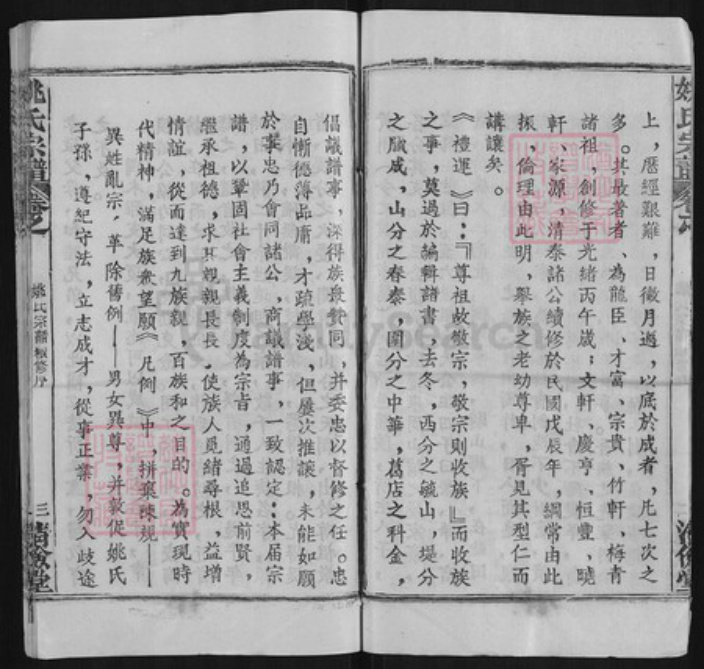 上，歷經艱難，日徵月邁，以底於成者，凡七次之
多。其最著者、為龍臣、才富、宗貴、竹軒、梅青
諸祖，創修于光緒丙午歲；文軒、慶亨、恒豐、曉
軒、家源、清泰諸公續修於民國戊辰年，綱常由此
振，倫理由此明，舉族之老幼尊卑，胥見其型仁而
講讓矣。
《禮運》曰：『尊祖故敬宗，敬宗則收族』而收族
之事，莫過於編輯譜書，去冬，西分之毓山，堤分
之賜成，山分之春泰，圍分之中華，葛店之科金，
倡議譜事，深得族眾贊同，并委忠以督修之任。忠
自慚德薄品庸，才疏學淺，但屢次推諉，未能如願
於葶忠乃會同諸公，商議譜事，一致認定：本屆宗
譜，以鞏固社會主義制度為宗旨，通過追思前賢，
繼承祖德，求其親親長長，使族人覓緒尋根，益增
情誼，從而達到九族親，百族和之目的。為實現時
代精神，滿足族眾望願《凡例》中，拼棄陳規——
異姓亂宗，革除舊例——男女異尊，并敦促姚氏
子孫，遵紀守法，立志成才，從事正業，勿入歧途
姚氏宗譜 卷之一
姚氏宗譜續修序
三
清儉堂
FamilySearch